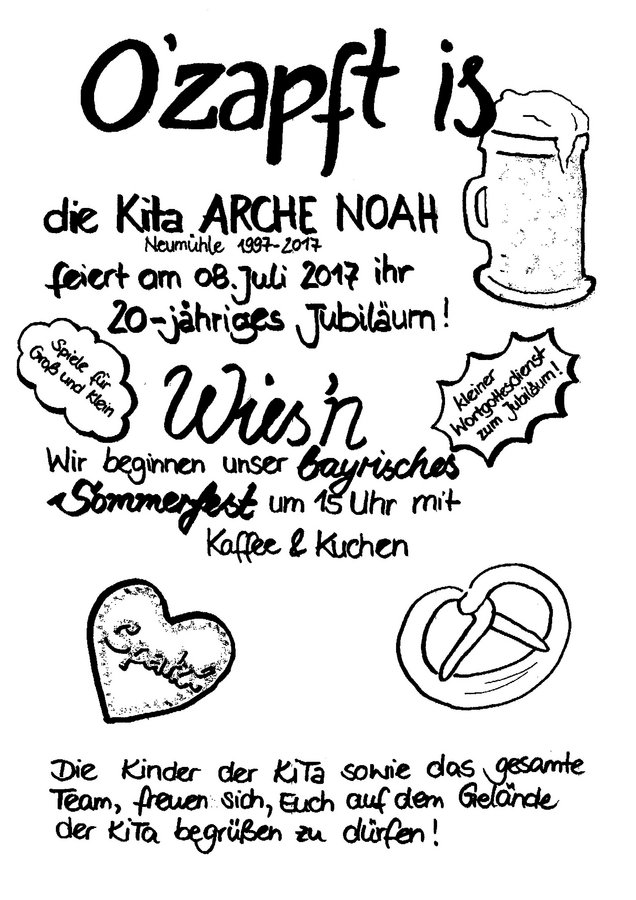 O'zapft is
die Kita ARCHE NOAH
Neumühle 1997-2017
feiert am 08. Juli 2017 ihr
20-jähriges Jubiläum!
Spiele für
Groß und Klein
Kleiner
Wortgottesdienst
zum Jubiläum!
Wies'n
Wir beginnen unser bayrisches
Sommerfest um 15 Uhr mit
Kaffee & Kuchen
Spatzi
Die Kinder der KiTa sowie das gesamte
Team, freuen sich, Euch auf dem Gelände
der KiTa begrüßen zu dürfen!